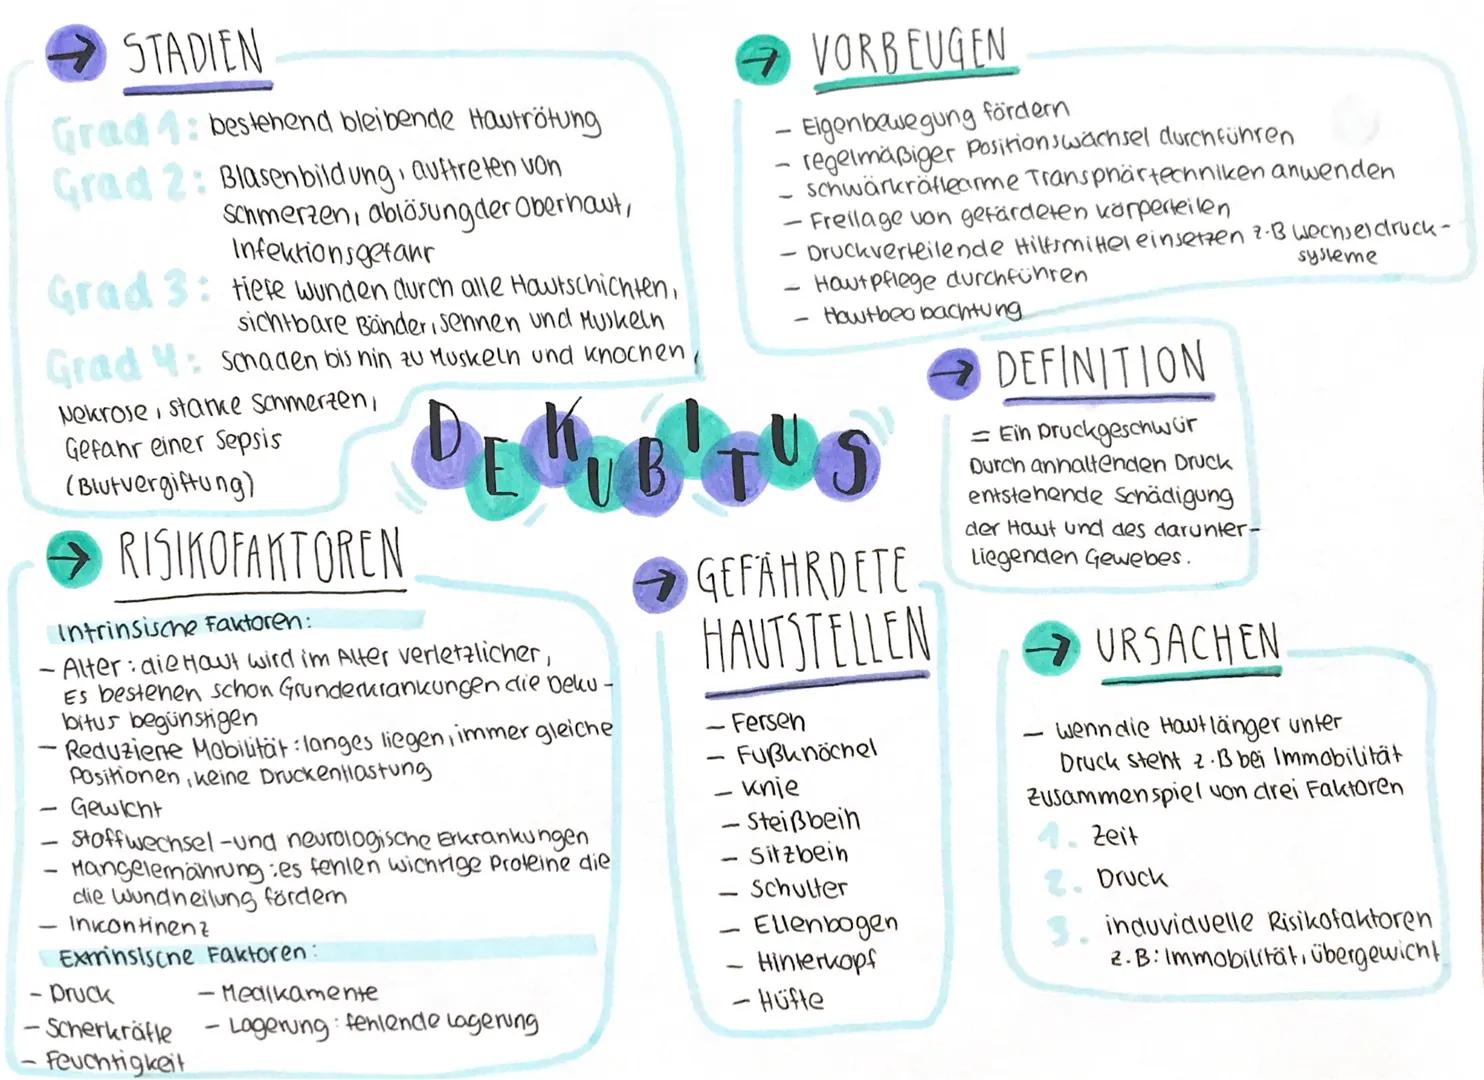 STADIEN
Grad 1: bestehend bleibende Hautrötung
Grad 2: Blasenbildung, auftreten von
schmerzen, ablösung der Oberhaut,
Infektionsgefahr
Grad 3: tiefe wunden durch alle Hautschichten,
sichtbare Bänder, sennen und Muskeln
Grad 4: schaden bis hin zu Muskeln und knochen,
Nekrose, starke Schmerzen,
Gefahr einer Sepsis
(Blutvergiftung)
VORBEUGEN
- Eigenbewegung fördern
- regelmäßiger Positionswächsel durchführen
- schwärkräftearme Transphärtechniken anwenden
- Freilage von gefärdeten körperteilen
- Druckverteilende Hilfsmittel einsetzen z.B wechseldruck-
systeme
- Hautpflege durchführen
- Hautbeobachtung
DEFINITION
= Ein Druckgeschwür
Durch anhaltenden Druck
entstehende Schädigung
der Haut und des darunter-
liegenden Gewebes.
DEKUBITUS
RISIKOFAKTOREN
Intrinsische Faktoren:
- Alter: die Haut wird im Alter verletzlicher,
Es bestehen schon Grunderkrankungen die Deku-
bitus begünstigen
- Reduzierte Mobilität: langes liegen, immer gleiche
Positionen, keine Druckentlastung
- Gewicht
- Stoffwechsel-und neurologische Erkrankungen
- Mangelernährung: es fehlen wichtige Proteine die
die Wundheilung fördern
- Inkontinenz
Extrinsische Faktoren:
- Druck
- Scherkräfte
- Feuchtigkeit
- Medikamente
- Lagerung: fehlende lagerung
GEFÄHRDETE
HAUTSTELLEN
- Fersen
- Fußknöchel
- Knie
- Steißbein
- Sitzbein
- Schulter
- Ellenbogen
- Hinterkopf
- Hüfte
URSACHEN
- wenn die Haut länger unter
Druck steht z.B bei Immobilität
Zusammenspiel von drei Faktoren
1. Zeit
2. Druck
3. induviduelle Risikofaktoren
z.B: Immobilität, übergewicht